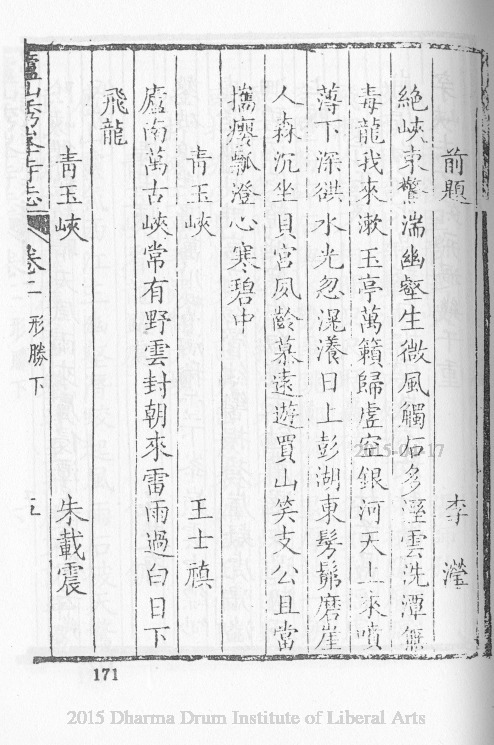 前題 李瀅
絕峽束驚湍幽壑生微風觸石多溼雲洗潭無
毒龍我來漱玉亭萬籟歸虛空銀河天上來噴
薄下深谼水光忽滉瀁日上彭湖東髣髴磨崖
人森沉坐貝宮夙齡慕遠遊買山笑支公且當
攜癭瓢澄心寒碧中
青玉峽 王士禛
廬南萬古峽常有野雲封朝來雷雨過白日下
飛龍
青玉峽 朱載震
廬山秀峯寺志 卷二 形勝下
171
2015 Dharma Drum Institute of Liberal Arts